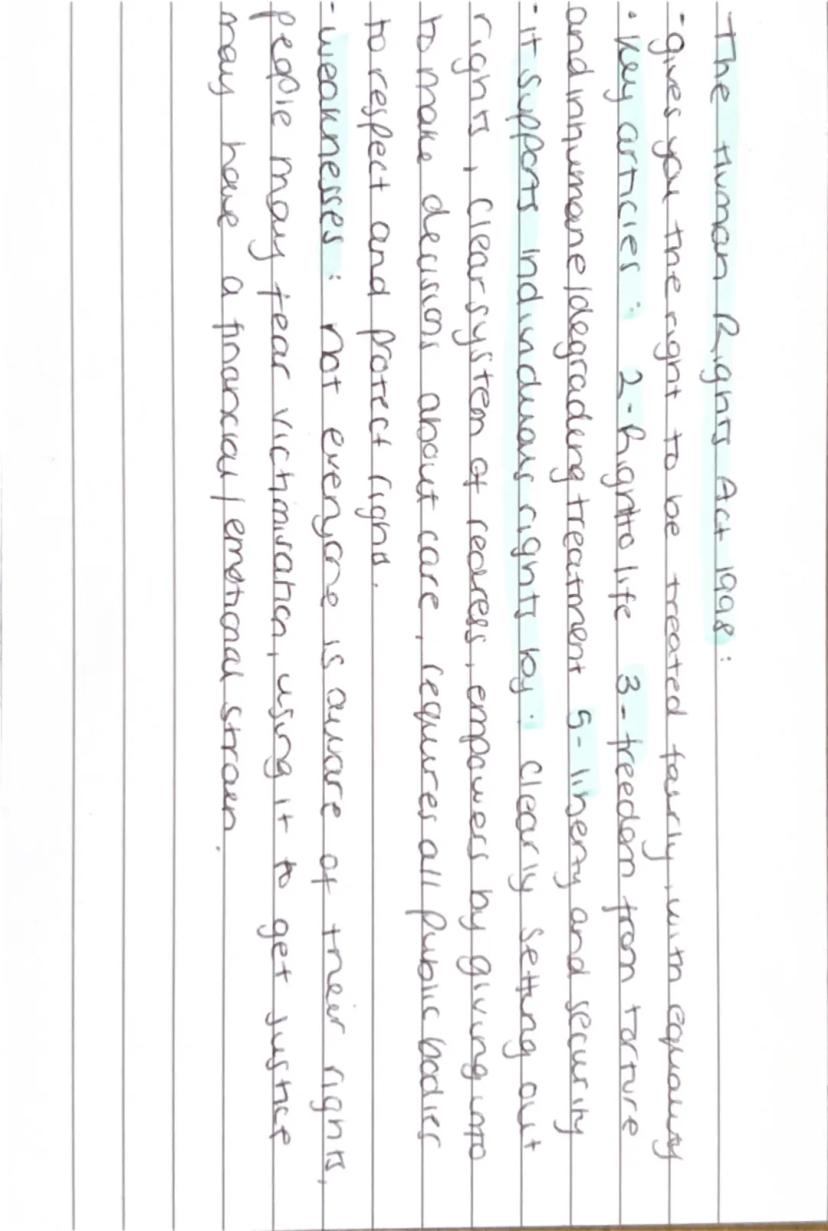 The Human Rights Act 1998:
- gives you the right to be treated fairly, with equality
• Key articles: 2-Right to life 3-freedom from torture
and inhumane/degrading treatment 5-liberty and security
- it supports individuals rights by: Clearly setting out
rights, clear system of redress, empowers by giving info
to make decisions about care, requires all public bodies
to respect and protect rights.
- weaknesses: not everyone is aware of their rights,
people may fear victimisation, using it to get justice
may have a financial/emotional strain.